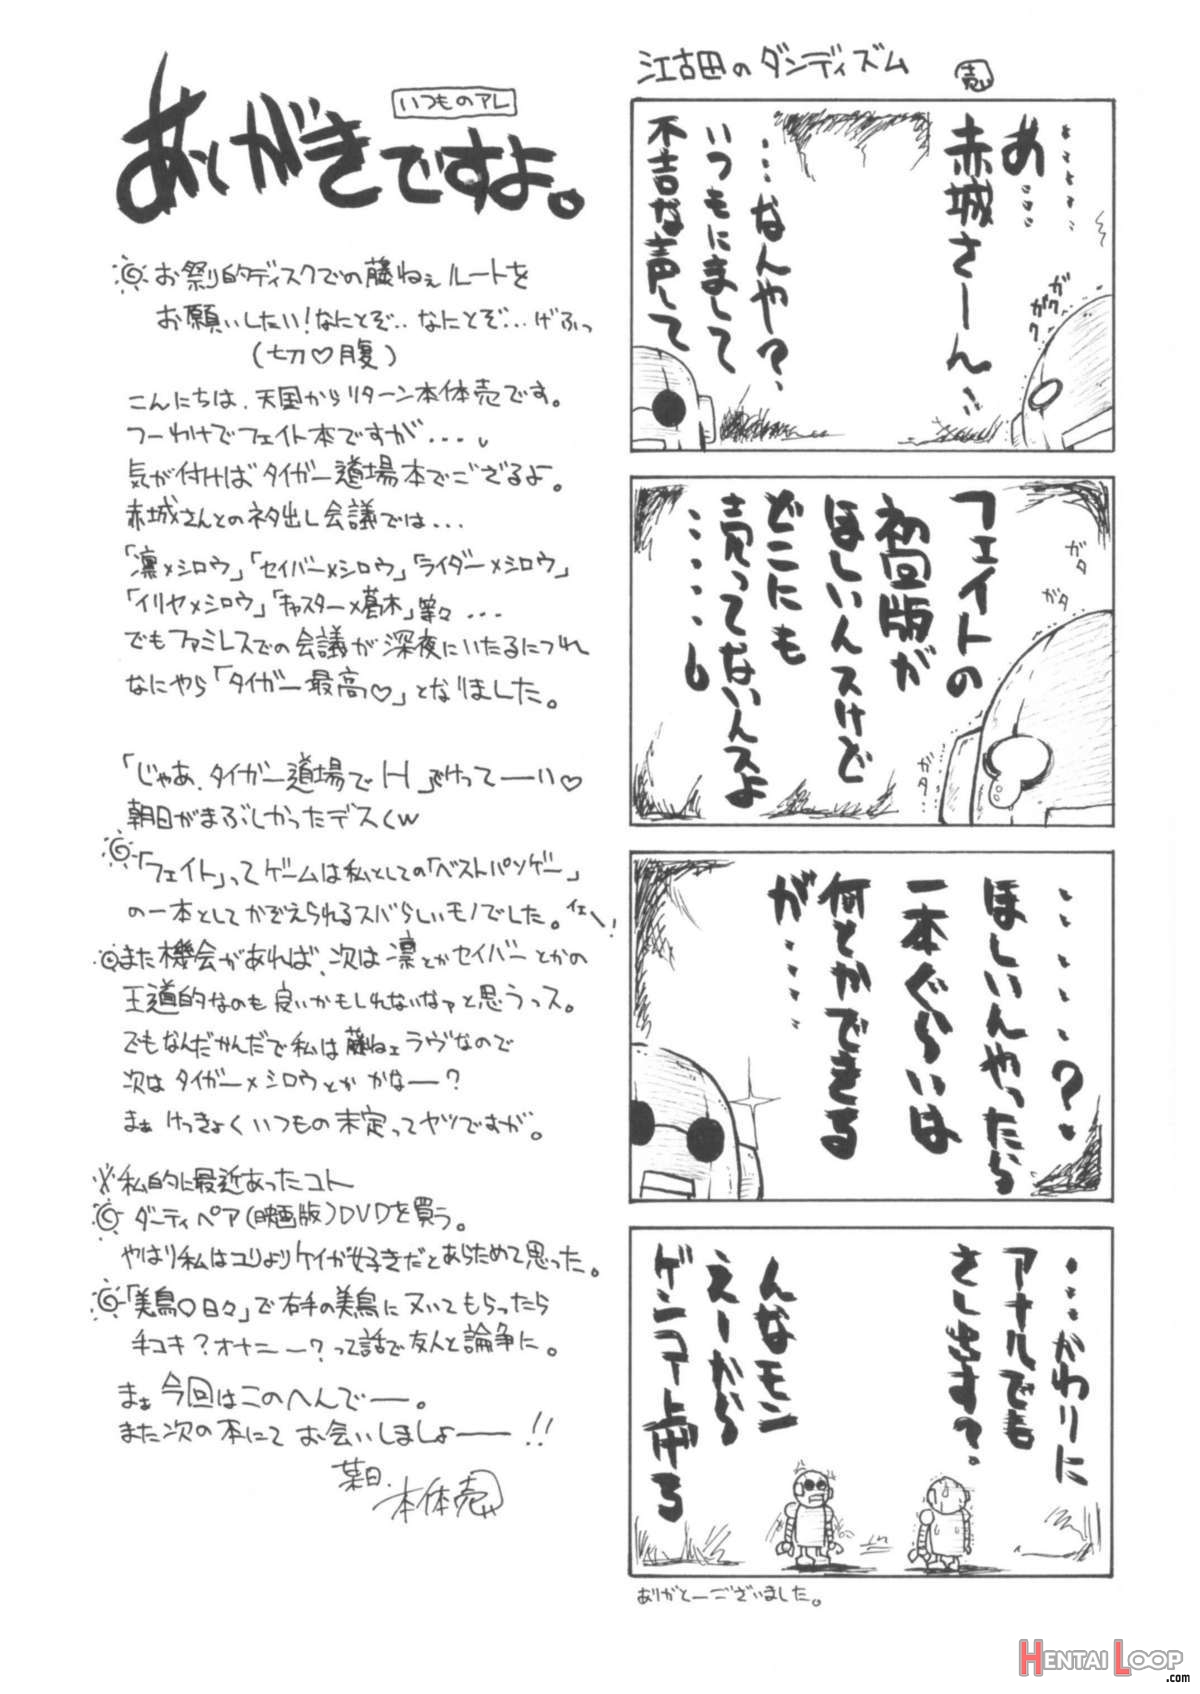 あとがきですよ。
いつものアレ
お祭り的ディスクでの藤ねぇルートを
お願いしたい!なにとぞ‥なにとぞ…げふっ
(切♡腹)
こんにちは、天国からリターン本体売です。
つーわけでフェイト本ですが・・・。
気が付けばタイガー道場本でござるよ。
赤城さんとのネタ出し会議では・・・
「凛×シロウ」「セイバー×シロウ」「ライダー×シロウ」
「イリヤ×シロウ」「キャスター×葛木」等々・・・
でもファミレスでの会議が深夜にいたるにつれ
なにやら「タイガー最高♡」となりました。
「じゃあ、タイガー道場でH」でけってーい♡
朝日がまぶしかったデスくw
「フェイト」ってゲームは私としての「ベストパソゲー」
の一本としてかぞえられるスバらしいモノでした。イェ〜!
また機会があれば、次は凛とかセイバーとかの
王道的なのも良いかもしれないなァと思うっス。
でもなんだかんだで私は藤ねェラヴなので
次はタイガー×シロウとかかなー?
まぁけっきょくいつもの未定ってヤツですが。
※私的に最近あったコト
ダーティペア(映画版)DVDを買う。
やはり私はユリよりケイが好きだとあらためて思った。
「美鳥の日々」で右手の美鳥にヌいてもらったら
手コキ?オナニー?って話で友人と論争に。
まぁ今回はこのへんでー。
また次の本にてお会いしましょー!!
某日.
本体売
江古田のダンディズム
売
・・・・・
あ・・・
赤城さーん・・
ガクガクガク
・・・なんや?
いつもにまして
不吉な声して
フェイトの
初回版が
ほしいんスけど
どこにも
売ってないんスよ
・・・・・
ガタ
ガタ
ガタ・・
・・・・・?
ほしいんやったら
一本ぐらいは
何とかできる
が・・・・
・・・かわりに
アナルでも
さし出す?
んなモン
えーから
ゲンコー上げろ
ありがとーございました。
HENTAI LOOP
.com